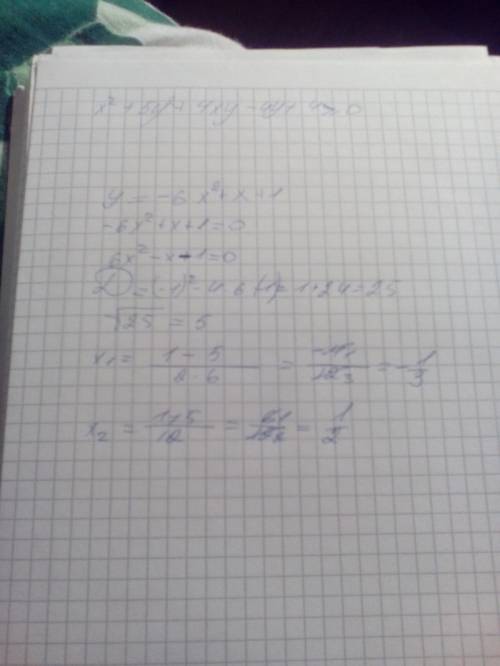 x² + 5y² + 4xy - 4y + 4 ≥ 0
y = -6x² + x + 1
-6x² + x + 1 = 0
6x² - x - 1 = 0
D = (-1)² - 4·6·(-1) = 1 + 24 = 25
√25 = 5
x₁ = (1 - 5)/(2·6) = -4/12 = -1/3
x₂ = (1+5)/12 = 6/12 = 1/2